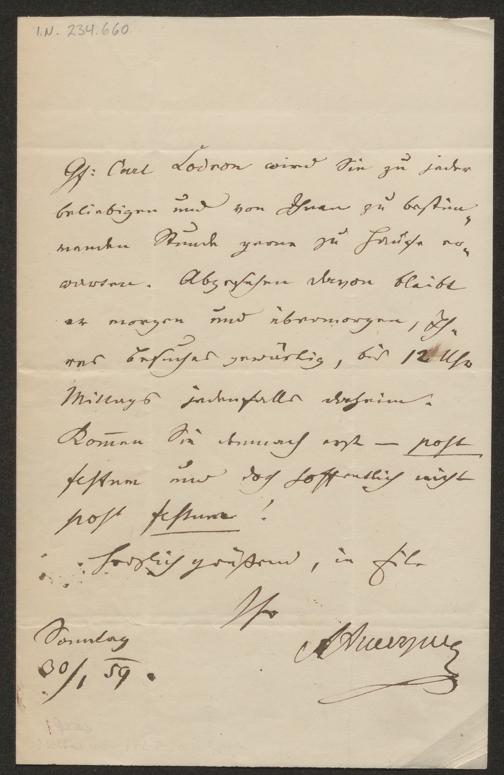 I.N. 234.660
Gf: Carl Lodron wird Sie zu jeder
beliebigen und von Ihnen zu bestim-
menden Stunde gerne zu Hause er-
warten. Abgesehen davon bleibt
er morgen und übermorgen, Ih-
res Besuches gewärtig, bis 12 Uhr
Mittags jedenfalls daheim.
Kom̄en Sie demnach erst — post
festum und doch hoffentlich nicht
post festum!
Herzlich grüßend, in Eile
Ihr
AAuersperg
Sonntag
30/1 59.